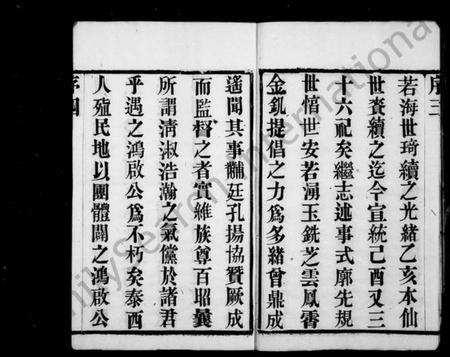 序三
若海世琦續之光緒乙亥本仙
世賚續之迄今宣統己酉又三
十六祀矣繼志述事式廓先規
世慎世安若湧玉銑芝雲鳳霄
金釓提倡之力爲多緒曾鼎成
遙聞其事黼廷孔揚協贊厥成
而監督之者實維族尊百昭鑲
所謂淸淑浩瀚之氣儻於諸君
乎遇之鴻啟公爲不朽矣泰西
人殖民地以團體鬭之鴻啟公
序四
FamilySearch International